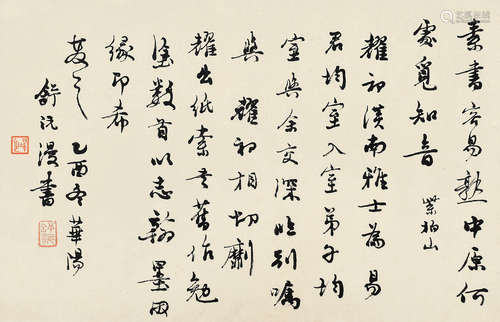 素書容易熟中原何
處覓知音 紫柏山
耀初漢南雅士為易
君均室入室弟子均
室與余交深臨別囑
與耀初相切劘
耀出紙索書舊作勉
塗數首以志翰墨因
緣即希
教之 乙酉冬華陽
舒沅漫書